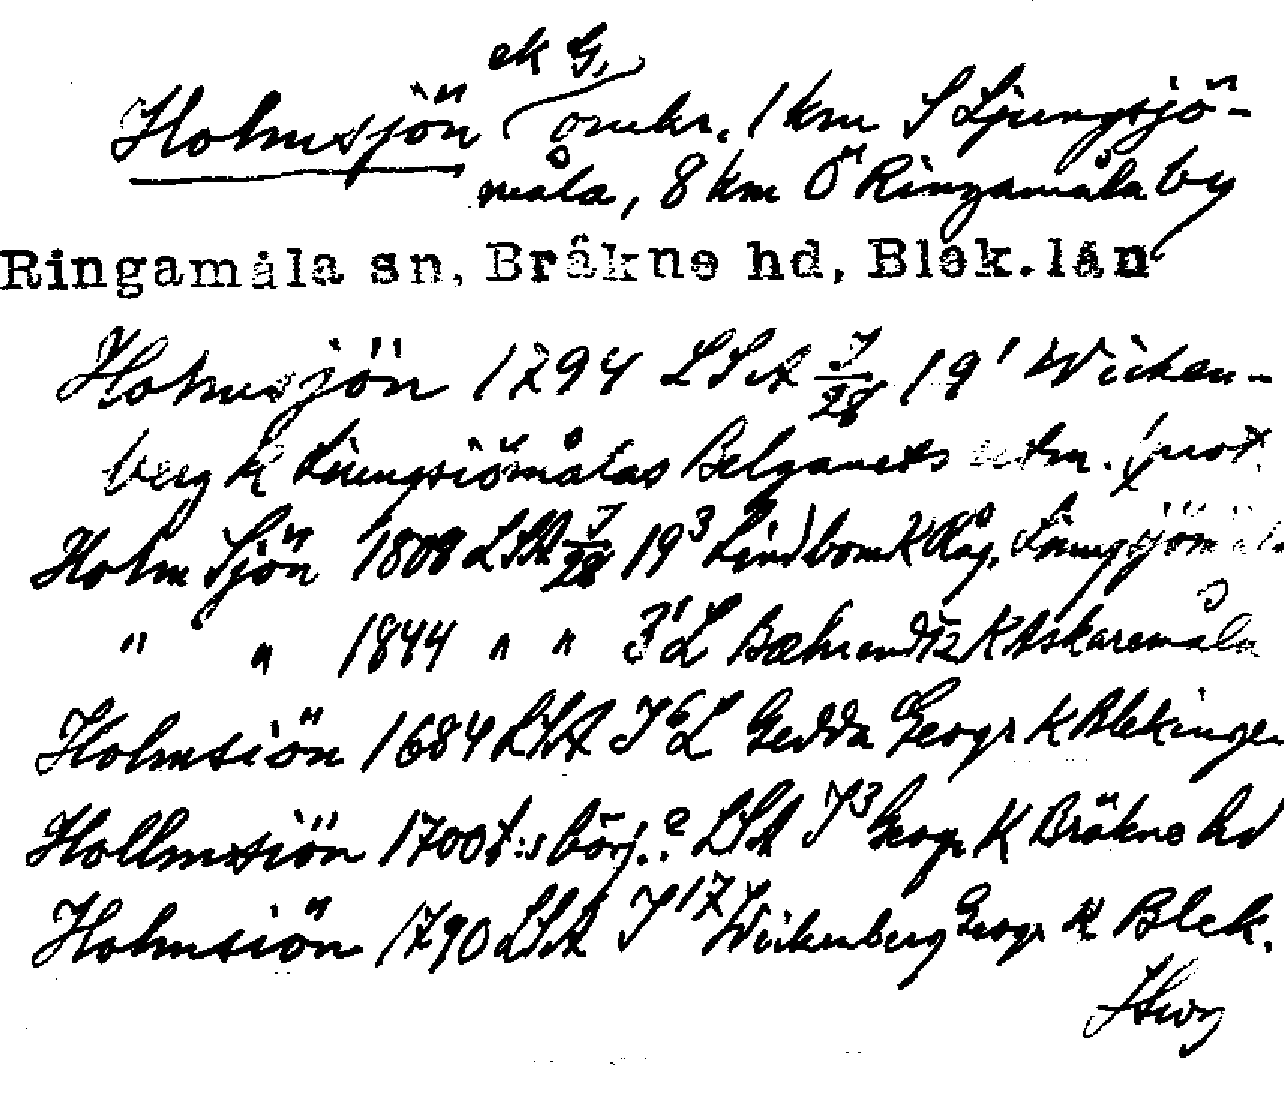 ek G.
Holmsjön omkr. 1 km S Ljungsjö-
måla, 8 km Ö Ringamåla by
Ringamåla sn, Bräkne hd, Blek. län
Holmsjön 1794 LSA 7/28 19¹ Wicken-
berg K Liungsiömålas Belganets prot.
Holm Sjön 1808 LSA 7/28 19³ Lindbom K Råg. Liungsjömåla
" " 1844 " " 3¹ L Bæhrendtz K Askaremåla
Holmsiön 1684 LSA I⁶ L Gedda Geogr K Blekinge
Hollmsiön 1700t:s börj.? LSA I³ Geogr K Bräkne hd
Holmsiön 1790 LSA I¹⁷ Wickenberg Geogr K Blek.